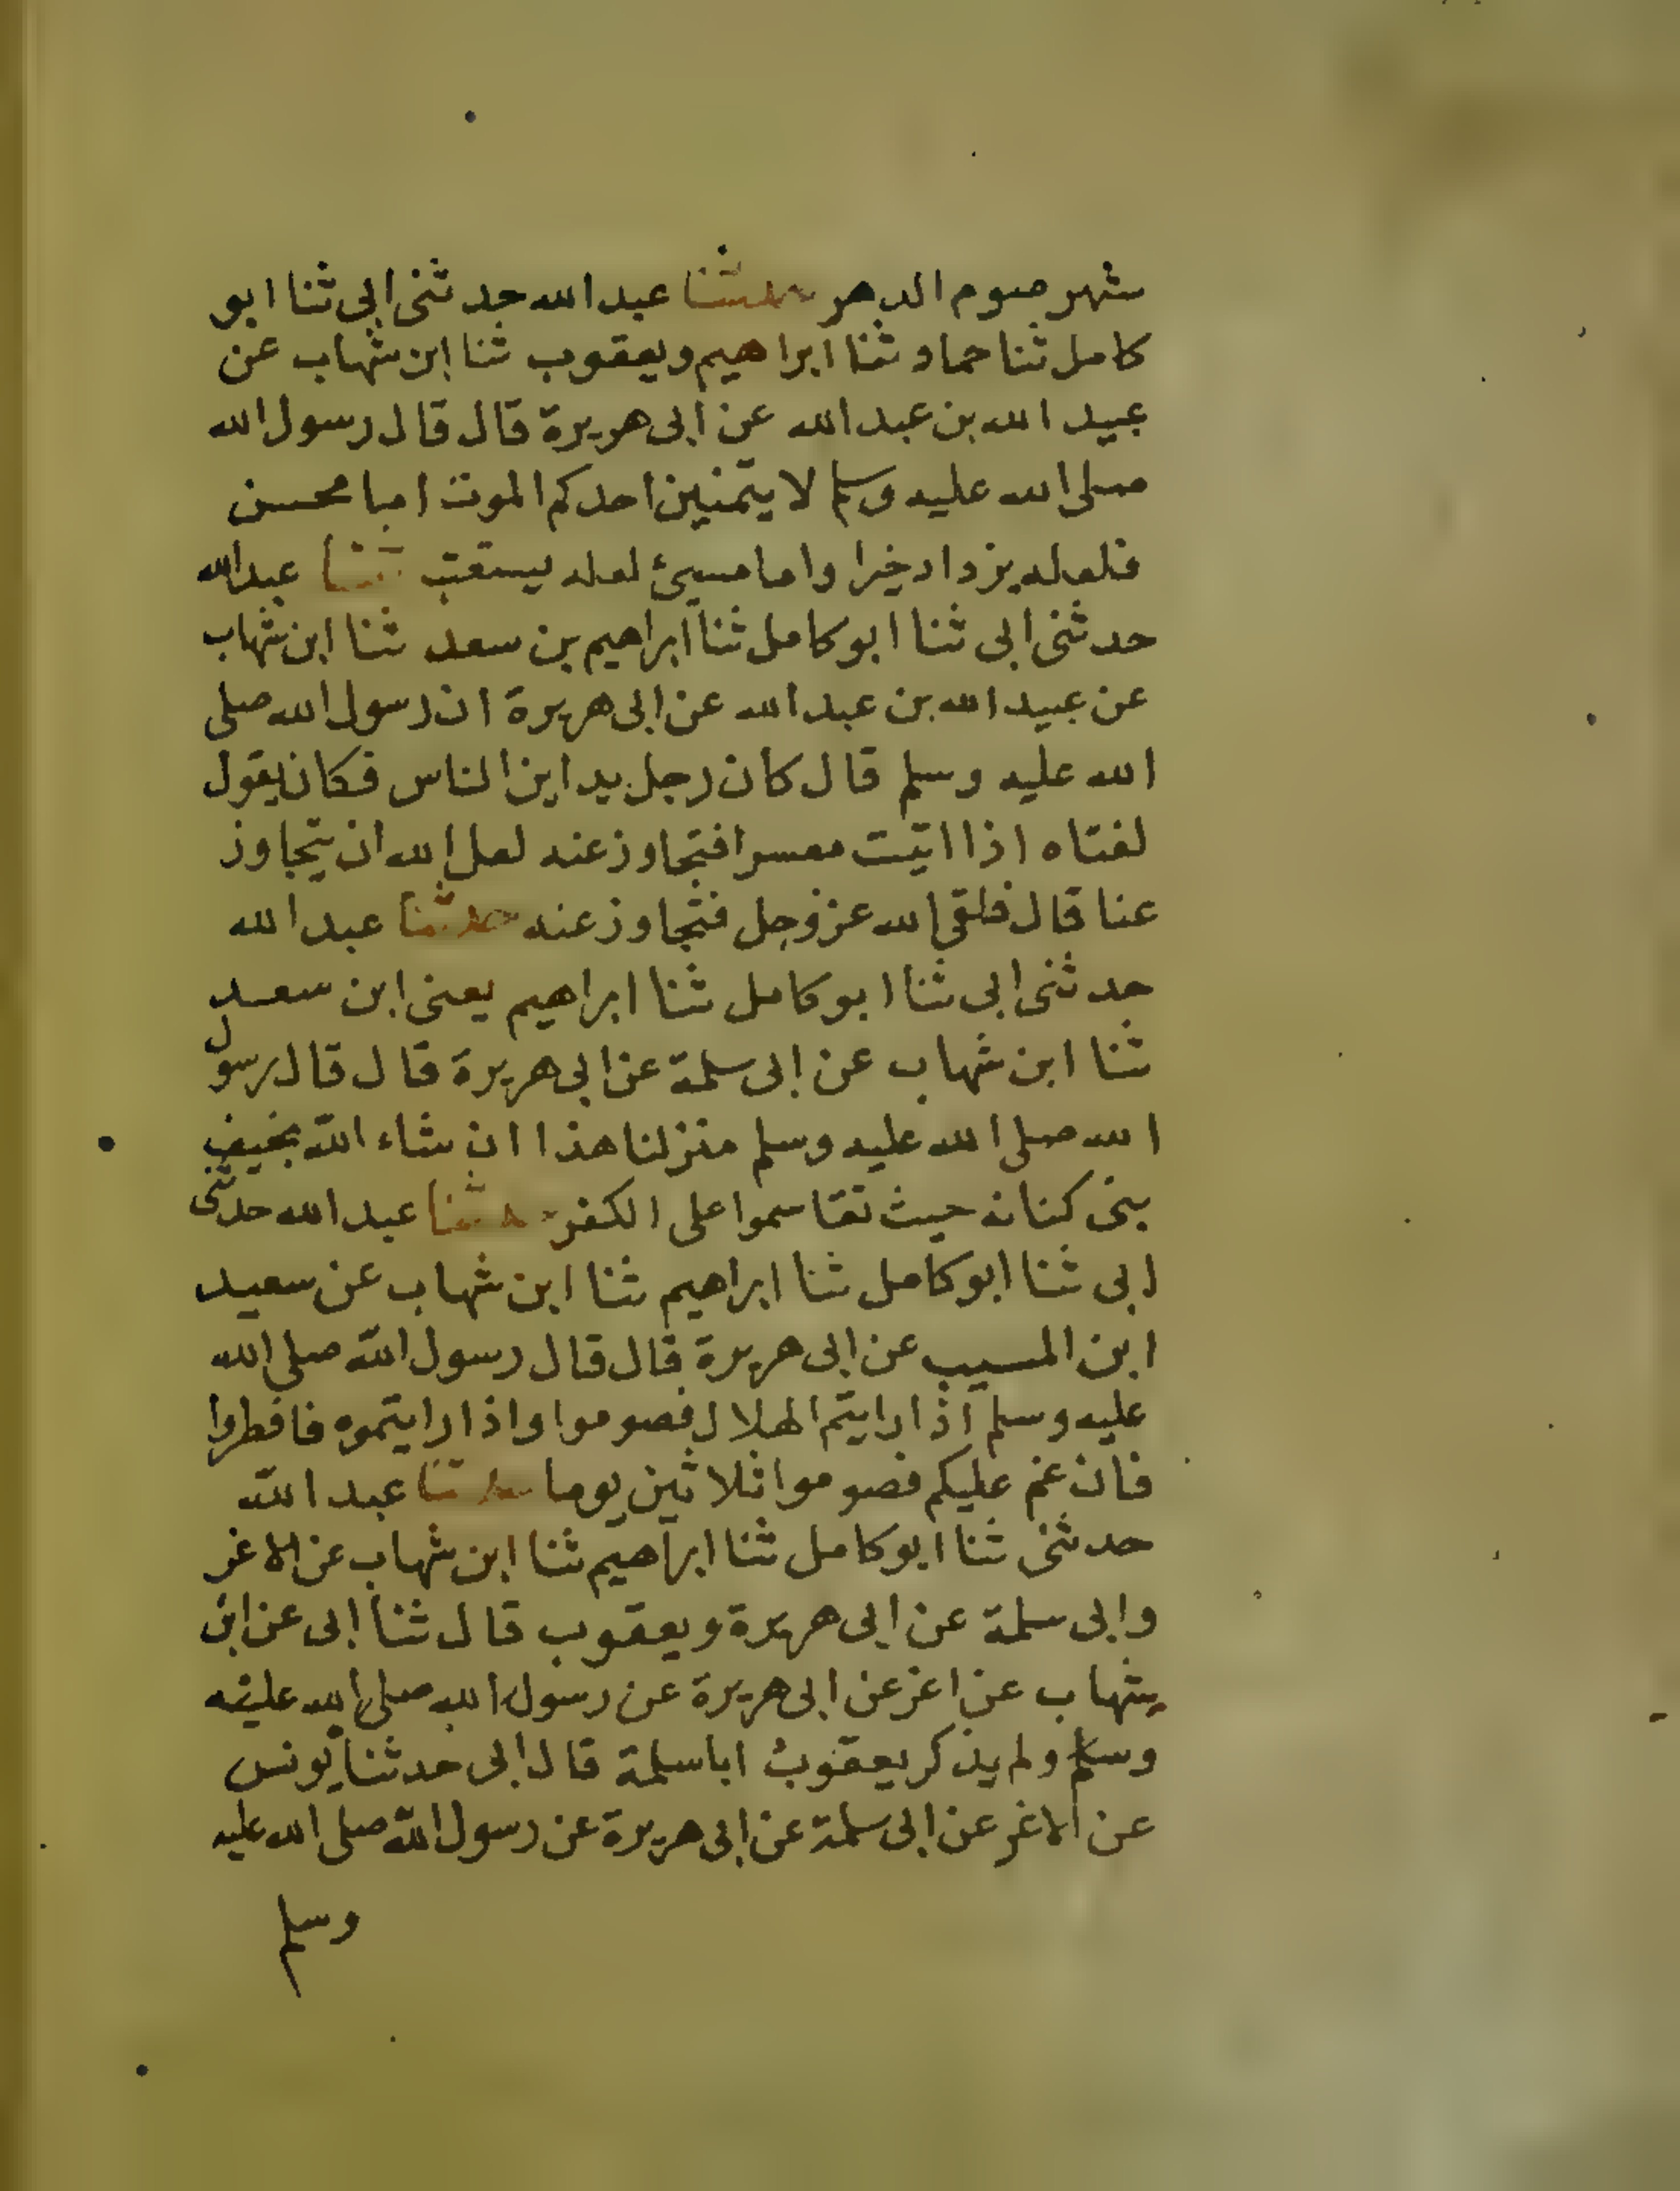 شهر صوم الدهر حدثنا عبد الله حدثنى ابى ثنا ابو
كامل ثنا حماد ثنا ابراهيم ويعقوب ثنا ابن شهاب عن
عبيد الله بن عبد الله عن ابى هريرة قال قال رسول الله
صلى الله عليه وسلم لا يتمنين احدكم الموت اما محسن
فلعله يزداد خيرا واما مسيئ لعله يستعتب ثنا عبد الله
حدثنى ابى ثنا ابو كامل ثنا ابراهيم بن سعد ثنا ابن شهاب
عن عبيد الله بن عبد الله عن ابى هريرة ان رسول الله صلى
الله عليه وسلم قال كان رجل يداين الناس فكان يقول
لفتاه اذا اتيت معسرا فتجاوز عنه لعل الله ان يتجاوز
عنا قال فلقى الله عز وجل فتجاوز عنه حدثنا عبد الله
حدثنى ابى ثنا ابو كامل ثنا ابراهيم يعنى ابن سعد
ثنا ابن شهاب عن ابى سلمة عن ابى هريرة قال قال رسول
الله صلى الله عليه وسلم منزلنا هذا ان شاء الله بخيف
بنى كنانه حيث تقاسموا على الكفر حدثنا عبد الله حدثنى
ابى ثنا ابو كامل ثنا ابراهيم ثنا ابن شهاب عن سعيد
ابن المسيب عن ابى هريرة قال قال رسول الله صلى الله
عليه وسلم اذا رايتم الهلال فصوموا واذا رايتموه فافطروا
فان غم عليكم فصوموا ثلاثين يوما حدثنا عبد الله
حدثنى ثنا ابو كامل ثنا ابراهيم ثنا ابن شهاب عن الاغر
وابى سلمة عن ابى هريرة ويعقوب قال ثنا ابى عن ابن
شهاب عن اغر عن ابى هريرة عن رسول الله صلى الله عليه
وسلم ولم يذكر يعقوب ابا سلمة قال ابى حدثنا يونس
عن الاغر عن ابى سلمة عن ابى هريرة عن رسول الله صلى الله عليه
وسلم